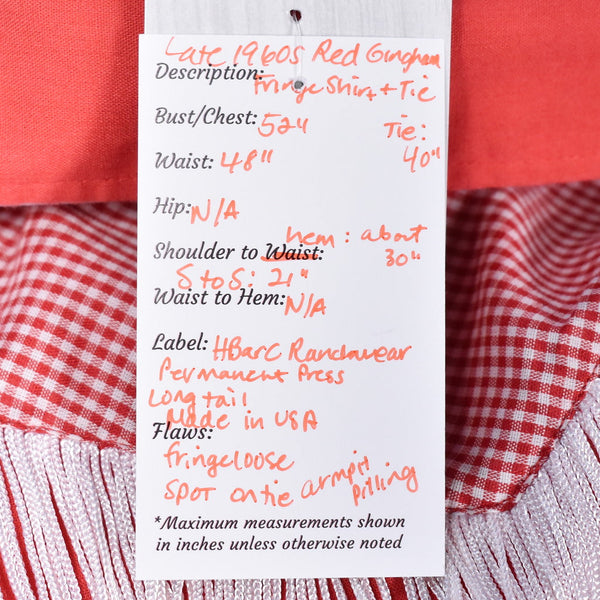 Late 1960s Red Gingham
Description: Fringe Shirt + Tie
Bust/Chest: 52" Tie:
Waist: 48" 40"
Hip: N/A
hem: about
Shoulder to Waist: 30"
S to S: 21"
Waist to Hem: N/A
Label: HBarC Ranchwear
Permanent Press
Longtail
Made in USA
Flaws:
fringe loose
spot on tie armpit pilling
*Maximum measurements shown
in inches unless otherwise noted